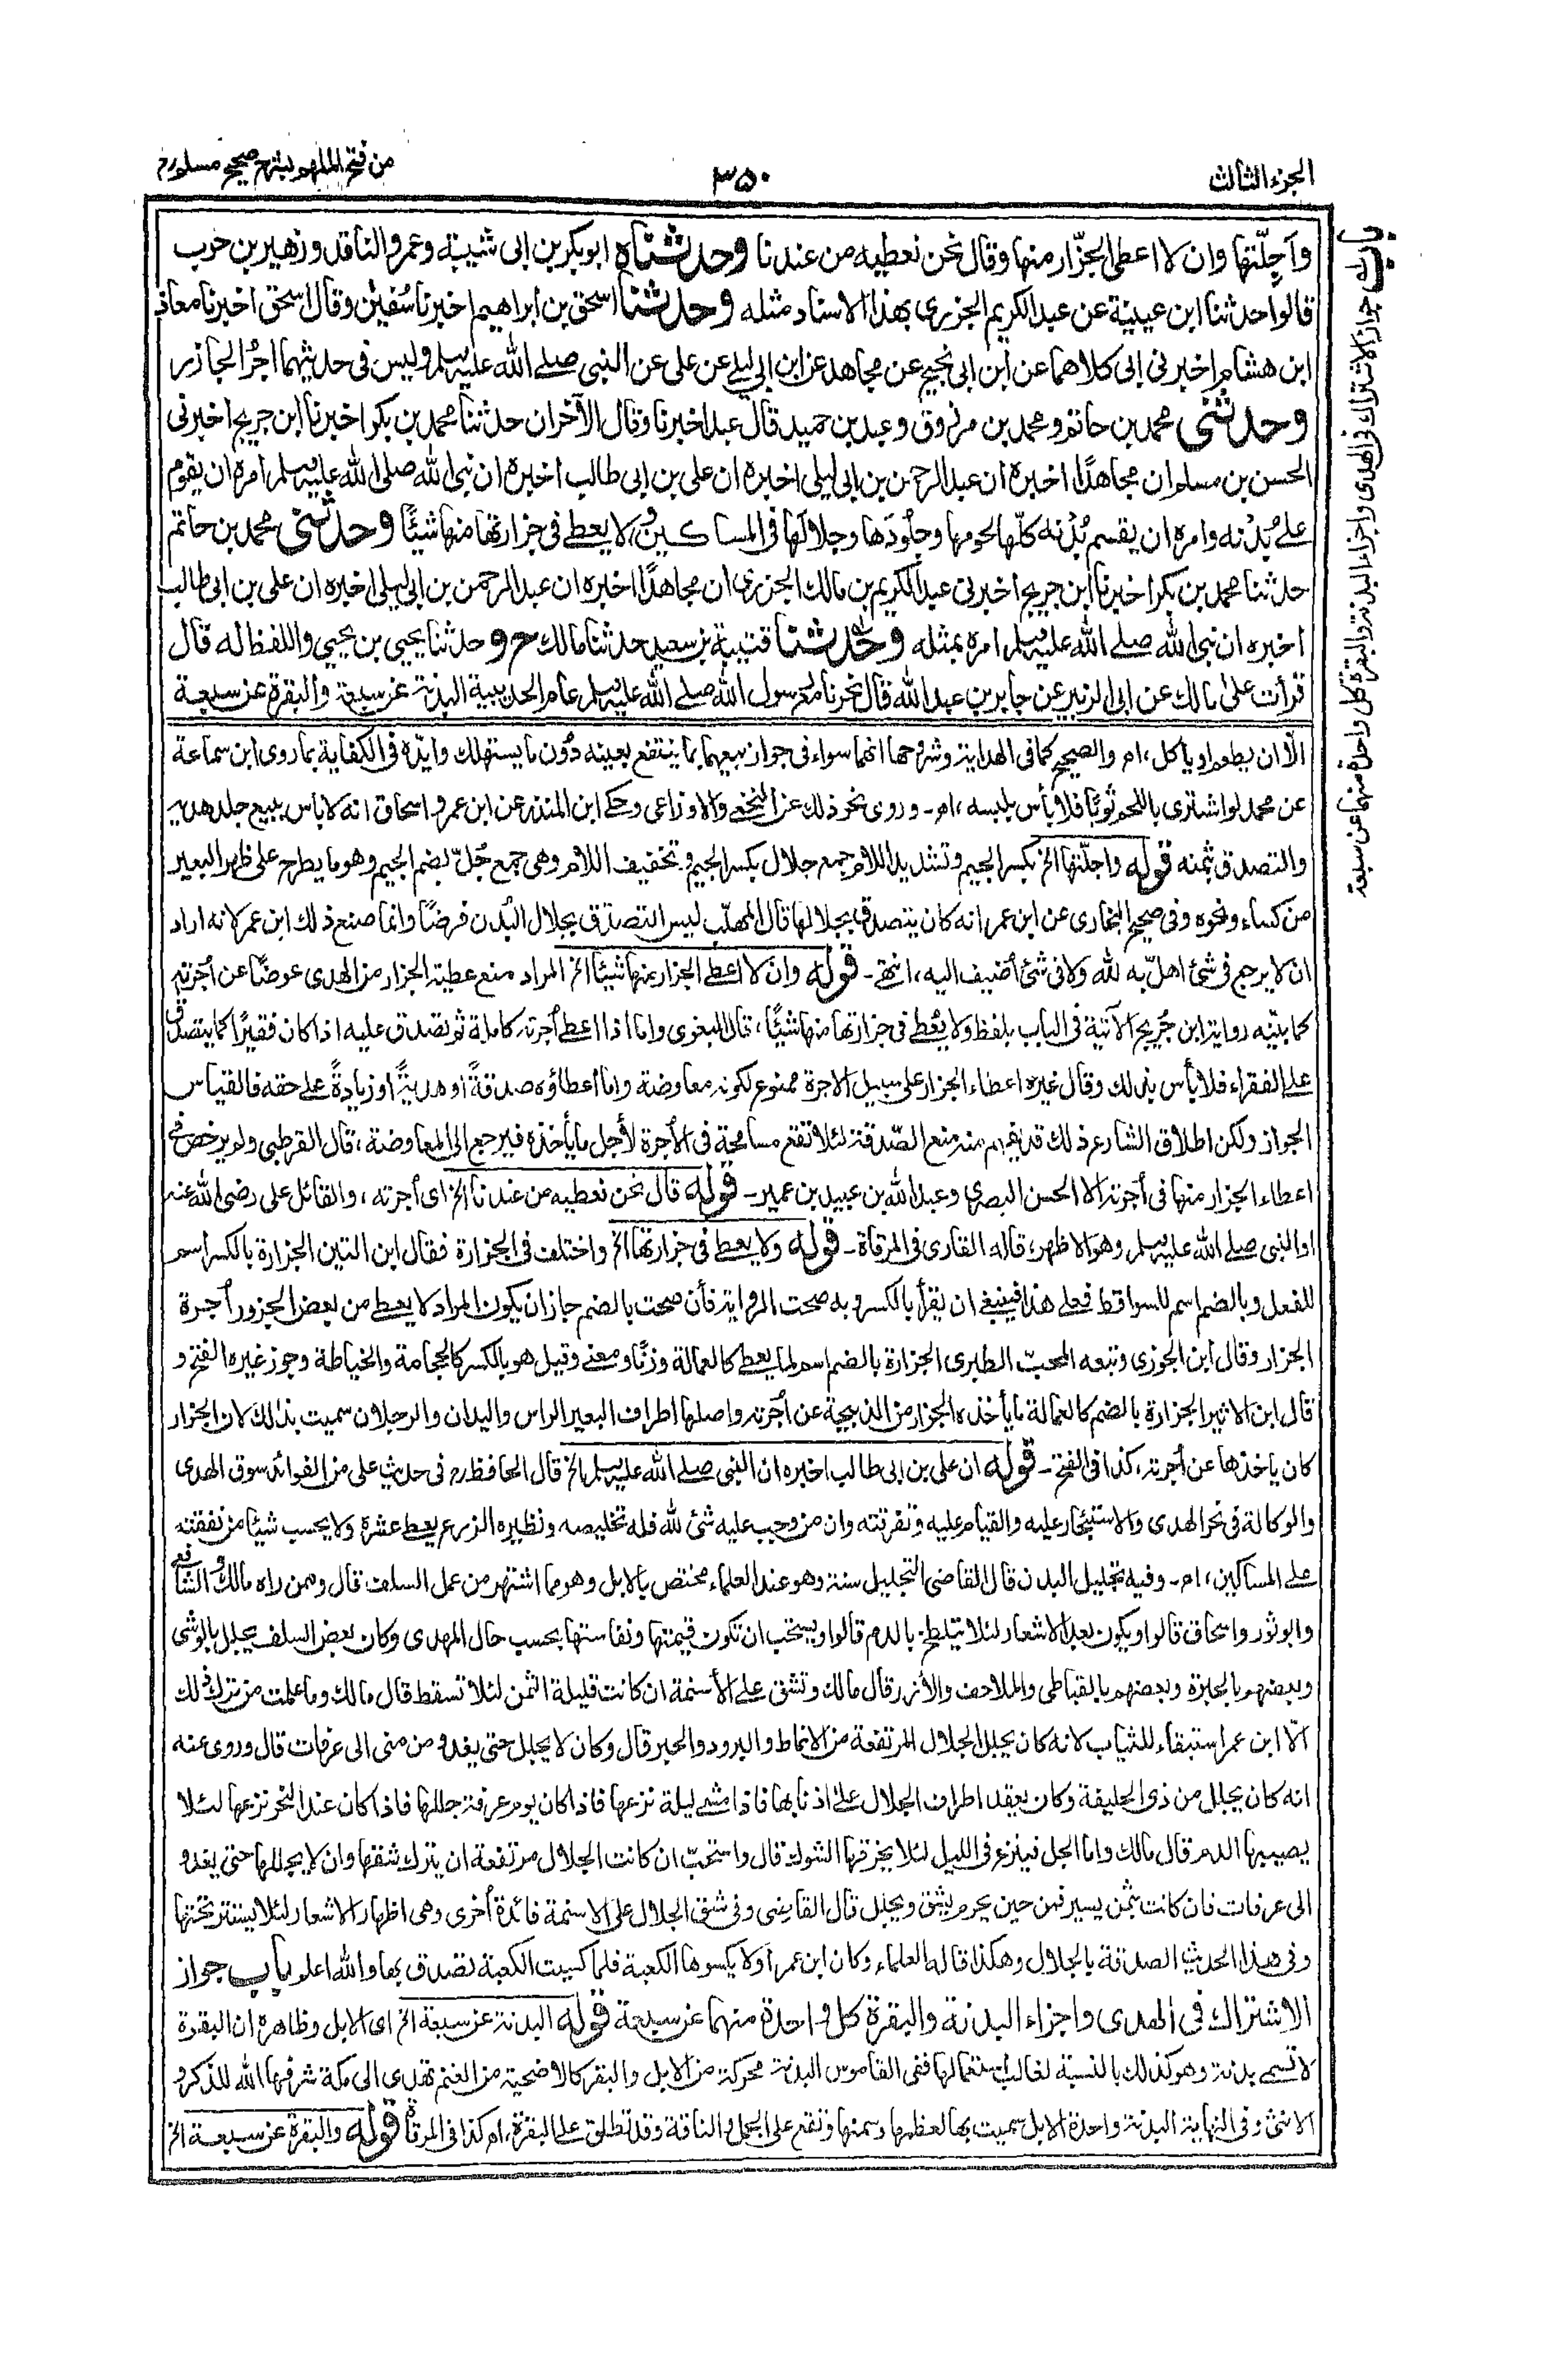 الجزء الثالث
٣٥٠
من فتح الملهم بشرح صحيح مسلم
باب جواز الاشتراك فى الهدى واجزاء البدنة والبقرة كل واحدة منهما عن سبعة
وأَجِلّتها وان لا اعطى الجزّار منها وقال نحن نعطيه من عندنا وحدثناه ابوبكر بن ابى شيبة وعمرو الناقد وزهير بن حرب
قالوا حدثنا ابن عيينة عن عبد الكريم الجزرى بهذا الاسناد مثله وحدثنا اسحق بن ابراهيم اخبرنا سُفيٰن وقال اسحق اخبرنا معاذ
ابن هشام اخبرنى ابى كلاهما عن ابن ابى نجيح عن مجاهد عن ابن ابى ليلے عن على عن النبى صلے الله عليه وسلم وليس فى حديثهما اجرُ الجازر
وحدثنى محمد بن حاتم ومحمد بن مرزوق وعبد بن حميد قال عبد اخبرنا وقال الآخران حدثنا محمد بن بكر اخبرنا ابن جريج اخبرنى
الحسن بن مسلم ان مجاهدًا اخبره ان عبد الرحمن بن ابى ليلى اخبره ان على بن ابى طالب اخبره ان نبى الله صلى الله عليه وسلم امره ان يقوم
علے بُدْنه وامره ان يقسم بُدْنه كلّها لحومها وجلُودَها وجلالَها فى المساكين ولا يعطى فى جزارتها منها شيئًا وحدثنى محمد بن حاتم
حدثنا محمد بن بكر اخبرنا ابن جريج اخبرنى عبد الكريم بن مالك الجزرى ان مجاهدًا اخبره ان عبد الرحمن بن ابى ليلى اخبره ان على بن ابى طالب
اخبره ان نبى الله صلے الله عليه وسلم امره بمثله وحدثنا قتيبة بن سعيد حدثنا مالك ح وحدثنا يحيى بن يحيى واللفظ له قال
قرأت على مالك عن ابى الزبير عن جابر بن عبد الله قال نحرنا مع رسول الله صلے الله عليه وسلم عام الحديبية البدنة عن سبعة والبقرة عن سبعة
الّا ان يطعم او ياكل، اھ والصحيح كما فى الهداية وشروحها انهما سواء فى جواز بيعهما بما ينتفع بعينه دُون ما يستهلك وايّده فى الكفاية بما روى ابن سماعة
عن محمد لو اشترى باللحم ثوبًا فلا بأس بلبسه، اھ- وروى نحو ذلك عن النخعى والاوزاعى وحكے ابن المنذر عن ابن عمر و اسحاق انه لا باس ببيع جلد هديه
والتصدق بثمنه قوله واجلّتها الخ بكسر الجيم وتشديد اللام جمع جلال بكسر الجيم وتخفيف اللام وهى جمع جُلّ بضم الجيم وهو ما يطرح على ظهر البعير
من كساء ونحوه وفى صحيح البخارى عن ابن عمر انه كان يتصدق بجلالها قال المهلّب ليس التصدّق بجلال البُدن فرضًا وانما صنع ذلك ابن عمر لانه اراد
ان لا يرجع فى شئ اهلّ به لله ولا فى شئ أضيف اليه، انتهے- قوله وان لا اعطے الجزار منها شيئا الخ المراد منع عطية الجزار من الهدى عوضًا عن أجرته
كما بيّنه رواية ابن جُريج الآتية فى الباب بلفظ ولا يُعطى فى جزارتها منها شيئًا، قال البغوى واما اذا اعطے أجرته كاملة ثم تصدق عليه اذا كان فقيرًا كما يتصدق
علے الفقراء فلا بأس بذلك وقال غيره اعطاء الجزار على سبيل الاجرة ممنوع لكونه معاوضة واما اعطاؤه صدقةً او هديةً او زيادةً علے حقه فالقياس
الجواز ولكن اطلاق الشارع ذلك قد يفهم منه منع الصّدقة لئلا تقع مسامحة فى الأجرة لأجل ما يأخذه فيرجع الى المعاوضة، قال القرطبى ولم يرخص فى
اعطاء الجزار منها فى أجرته الا الحسن البصرى وعبد الله بن عبيد بن عمير- قوله قال نحن نعطيه من عندنا الخ اى أجرته، والقائل على رضى الله عنه
او النبى صلے الله عليه وسلم وهو الاظهر، قاله القارى فى المرقاة- قوله ولا يعطے فى جزارتها الخ واختلف فى الجزارة فقال ابن التين الجزارة بالكسر اسم
للفعل وبالضم اسم للسواقط فعلے هذا فينبغے ان يقرأ بالكسر وبه صحت الرواية فأن صحت بالضم جاز ان يكون المراد لا يعطے من بعض الجزور أجرة
الجزار وقال ابن الجوزى وتبعه المحبّ الطبرى الجزارة بالضم اسم لما يعطے كالعمالة وزنًا ومعنے وقيل هو بالكسر كالحجامة والخياطة وجوز غيره الفتح و
قال ابن الاثير الجزارة بالضم كالعُمالة ما يأخذه الجزار من الذبيحة عن أجرته واصلها اطراف البعير الراس واليدان والرجلان سميت بذلك لان الجزار
كان ياخذها عن أجرته، كذا فى الفتح- قوله ان على بن ابى طالب اخبره ان النبى صلے الله عليه وسلم الخ قال الحافظ رح فى حديث على من الفوائد سوق الهدى
والوكالة فى نحر الهدى والاستئجار عليه والقيام عليه وتفرقته وان من وجب عليه شئ لله فله تخليصه ونظيره الزرع يعطے عشره ولا يحسب شيئا من نفقته
علے المساكين، اھ- وفيه تجليل البدن قال القاضى التجليل سنة وهو عند العلماء مختص بالابل وهو مما اشتهر من عمل السلف قال وممن راه مالك والشافعى
وابو ثور واسحاق قالوا ويكون بعد الاشعار لئلا يتلطخ بالدم قالوا ويستحب ان تكون قيمتها ونفاستها بحسب حال المهدى وكان بعض السلف يجلل بالوشى
وبعضهم بالحبرة وبعضهم بالقباطى والملاحف والأزر قال مالك وتشق علے الأسنمة ان كانت قليلة الثمن لئلا تسقط قال مالك وما علمت من ترك ذلك
الّا ابن عمر استبقاء للثياب لانه كان يجلل الجلال المرتفعة من الانماط والبرود والحبر قال وكان لا يجلل حتى يغدو من منى الى عرفات قال وروى عنه
انه كان يجلل من ذى الحليفة وكان يعقد اطراف الجلال علے اذنابها فاذا مشے ليلة نزعها فاذا كان يوم عرفة جللها فاذا كان عند النحر نزعها لئلا
يصيبها الدم قال مالك واما الجل فينزع فى الليل لئلا يخرقها الشوك قال واستحبّ ان كانت الجلال مرتفعة ان يترك شقها وان لا يجللها حتى يغدو
الى عرفات فان كانت بثمن يسير فمن حين يحرم يشق ويجلل قال القاضى وفى شق الجلال على الاسنمة فائدة أخرى وهى اظهار الاشعار لئلا يستتر تحتها
وفى هذا الحديث الصدقة بالجلال وهكذا قاله العلماء وكان ابن عمر اولا يكسوها الكعبة فلما كسيت الكعبة تصدق بها والله اعلم باب جواز
الاشتراك فى الهدى واجزاء البدنة والبقرة كل واحدة منهما عن سبعة قوله البدنة عن سبعة الخ اى الابل وظاهره ان البقرة
لا تسمے بدنة وهو كذلك بالنسبة لغالب استعمالها ففى القاموس البدنة محركة من الابل والبقر كالاضحية من الغنم تهدى الى مكة شرفها الله للذكر و
الانثى وفى النهاية البدنة واحدة الابل سميت بها لعظمها وسمنها وتقع على الجمل والناقة وقد تطلق علے البقرة، اھ كذا فى المرقاة قوله والبقرة عن سبعة الخ